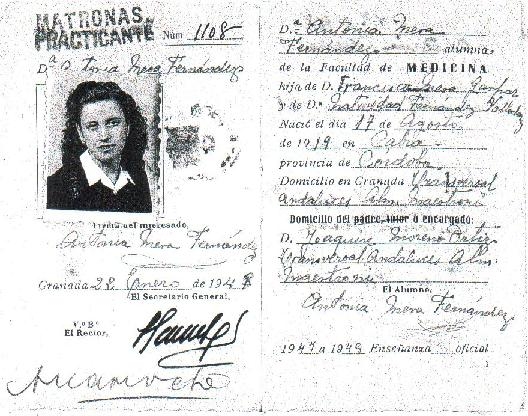 MATRONAS
PRACTICANTE Núm 1108
D.ª Antonia Mera Fernández
Firma del interesado,
Antonia Mera Fernández
Granada 22 Enero de 194
El Secretario General,
V.º B.º
El Rector,
D.ª Antonia Mera
Fernández alumna
de la Facultad de MEDICINA
hija de D. Francisco Mera
y de D.ª Natividad Fernández
Nació el día 17 de Agosto
de 1919 en Cabra
provincia de Córdoba
Domicilio en Granada Transversal
Andaluces
Domicilio del padre, tutor o encargado:
D. Joaquín Moreno Ortiz
Transversal Andaluces Alm.
El Alumno,
Antonia Mera Fernández
1947 a 1948 Enseñanza oficial